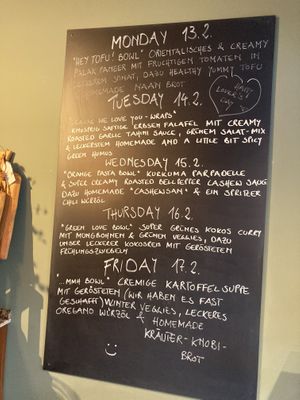 MONDAY 13.2.
"HEY TOFU! BOWL" ORIENTALISCHES & CREAMY
PALAK PANEER MIT FRUCHTIGEN TOMATEN IN
SPINAT, DAZU HEALTHY YUMMY TOFU
HOMEMADE NAAN BROT
TUESDAY 14.2.
WE LOVE YOU - WRAPS"
KNUSPRIG SAFTIGE ERBSEN FALAFEL MIT CREAMY
ROASTED GARLIC TAHINI SAUCE, GRÜNEM SALAT-MIX
& LECKERSTEM HOMEMADE AND A LITTLE BIT SPICY
GREEN HUMUS
Happy
Love
Day
WEDNESDAY 15.2.
"ORANGE PASTA BOWL" KURKUMA PARPADELLE
& SUPER CREAMY ROASTED CASHEW SAUCE
DAZU HOMEMADE "CASHEWSAN" & EIN SPRITZER
CHILI WÜRZÖL
THURSDAY 16.2.
"GREEN LOVE BOWL" SUPER GRÜNES KOKOS CURRY
MIT MUNGBOHNEN & GRÜNEM VEGGIES, DAZU
UNSER LECKERER KOKOSREIS MIT GERÖSTETEN
FRÜHLINGSZWIEBELN
FRIDAY 17.2.
"...MMH BOWL" CREMIGE KARTOFFELSUPPE
MIT GERÖSTETEN (WIR HABEN ES FAST
GESCHAFFT) WINTER VEGGIES, LECKERES
OREGANO WÜRZÖL & HOMEMADE
KRÄUTER-KNOBI-
BROT